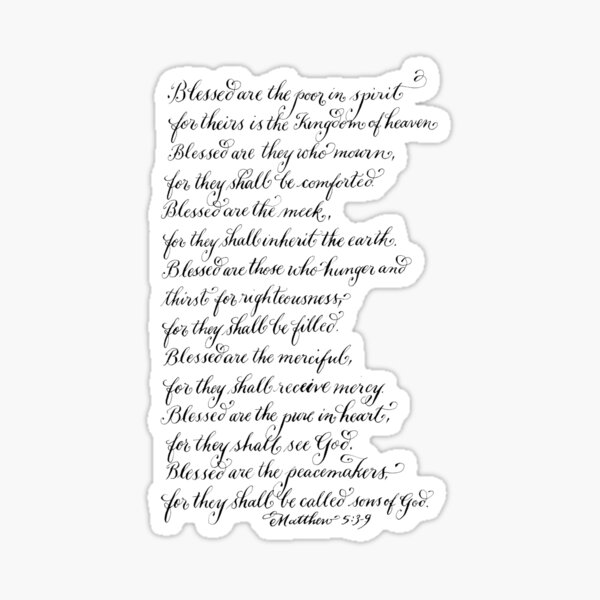 Blessed are the poor in spirit
for theirs is the Kingdom of heaven
Blessed are they who mourn,
for they shall be comforted.
Blessed are the meek,
for they shall inherit the earth.
Blessed are those who hunger and
thirst for righteousness,
for they shall be filled.
Blessed are the merciful,
for they shall receive mercy.
Blessed are the pure in heart,
for they shall see God.
Blessed are the peacemakers,
for they shall be called sons of God.
Matthew 5:3-9